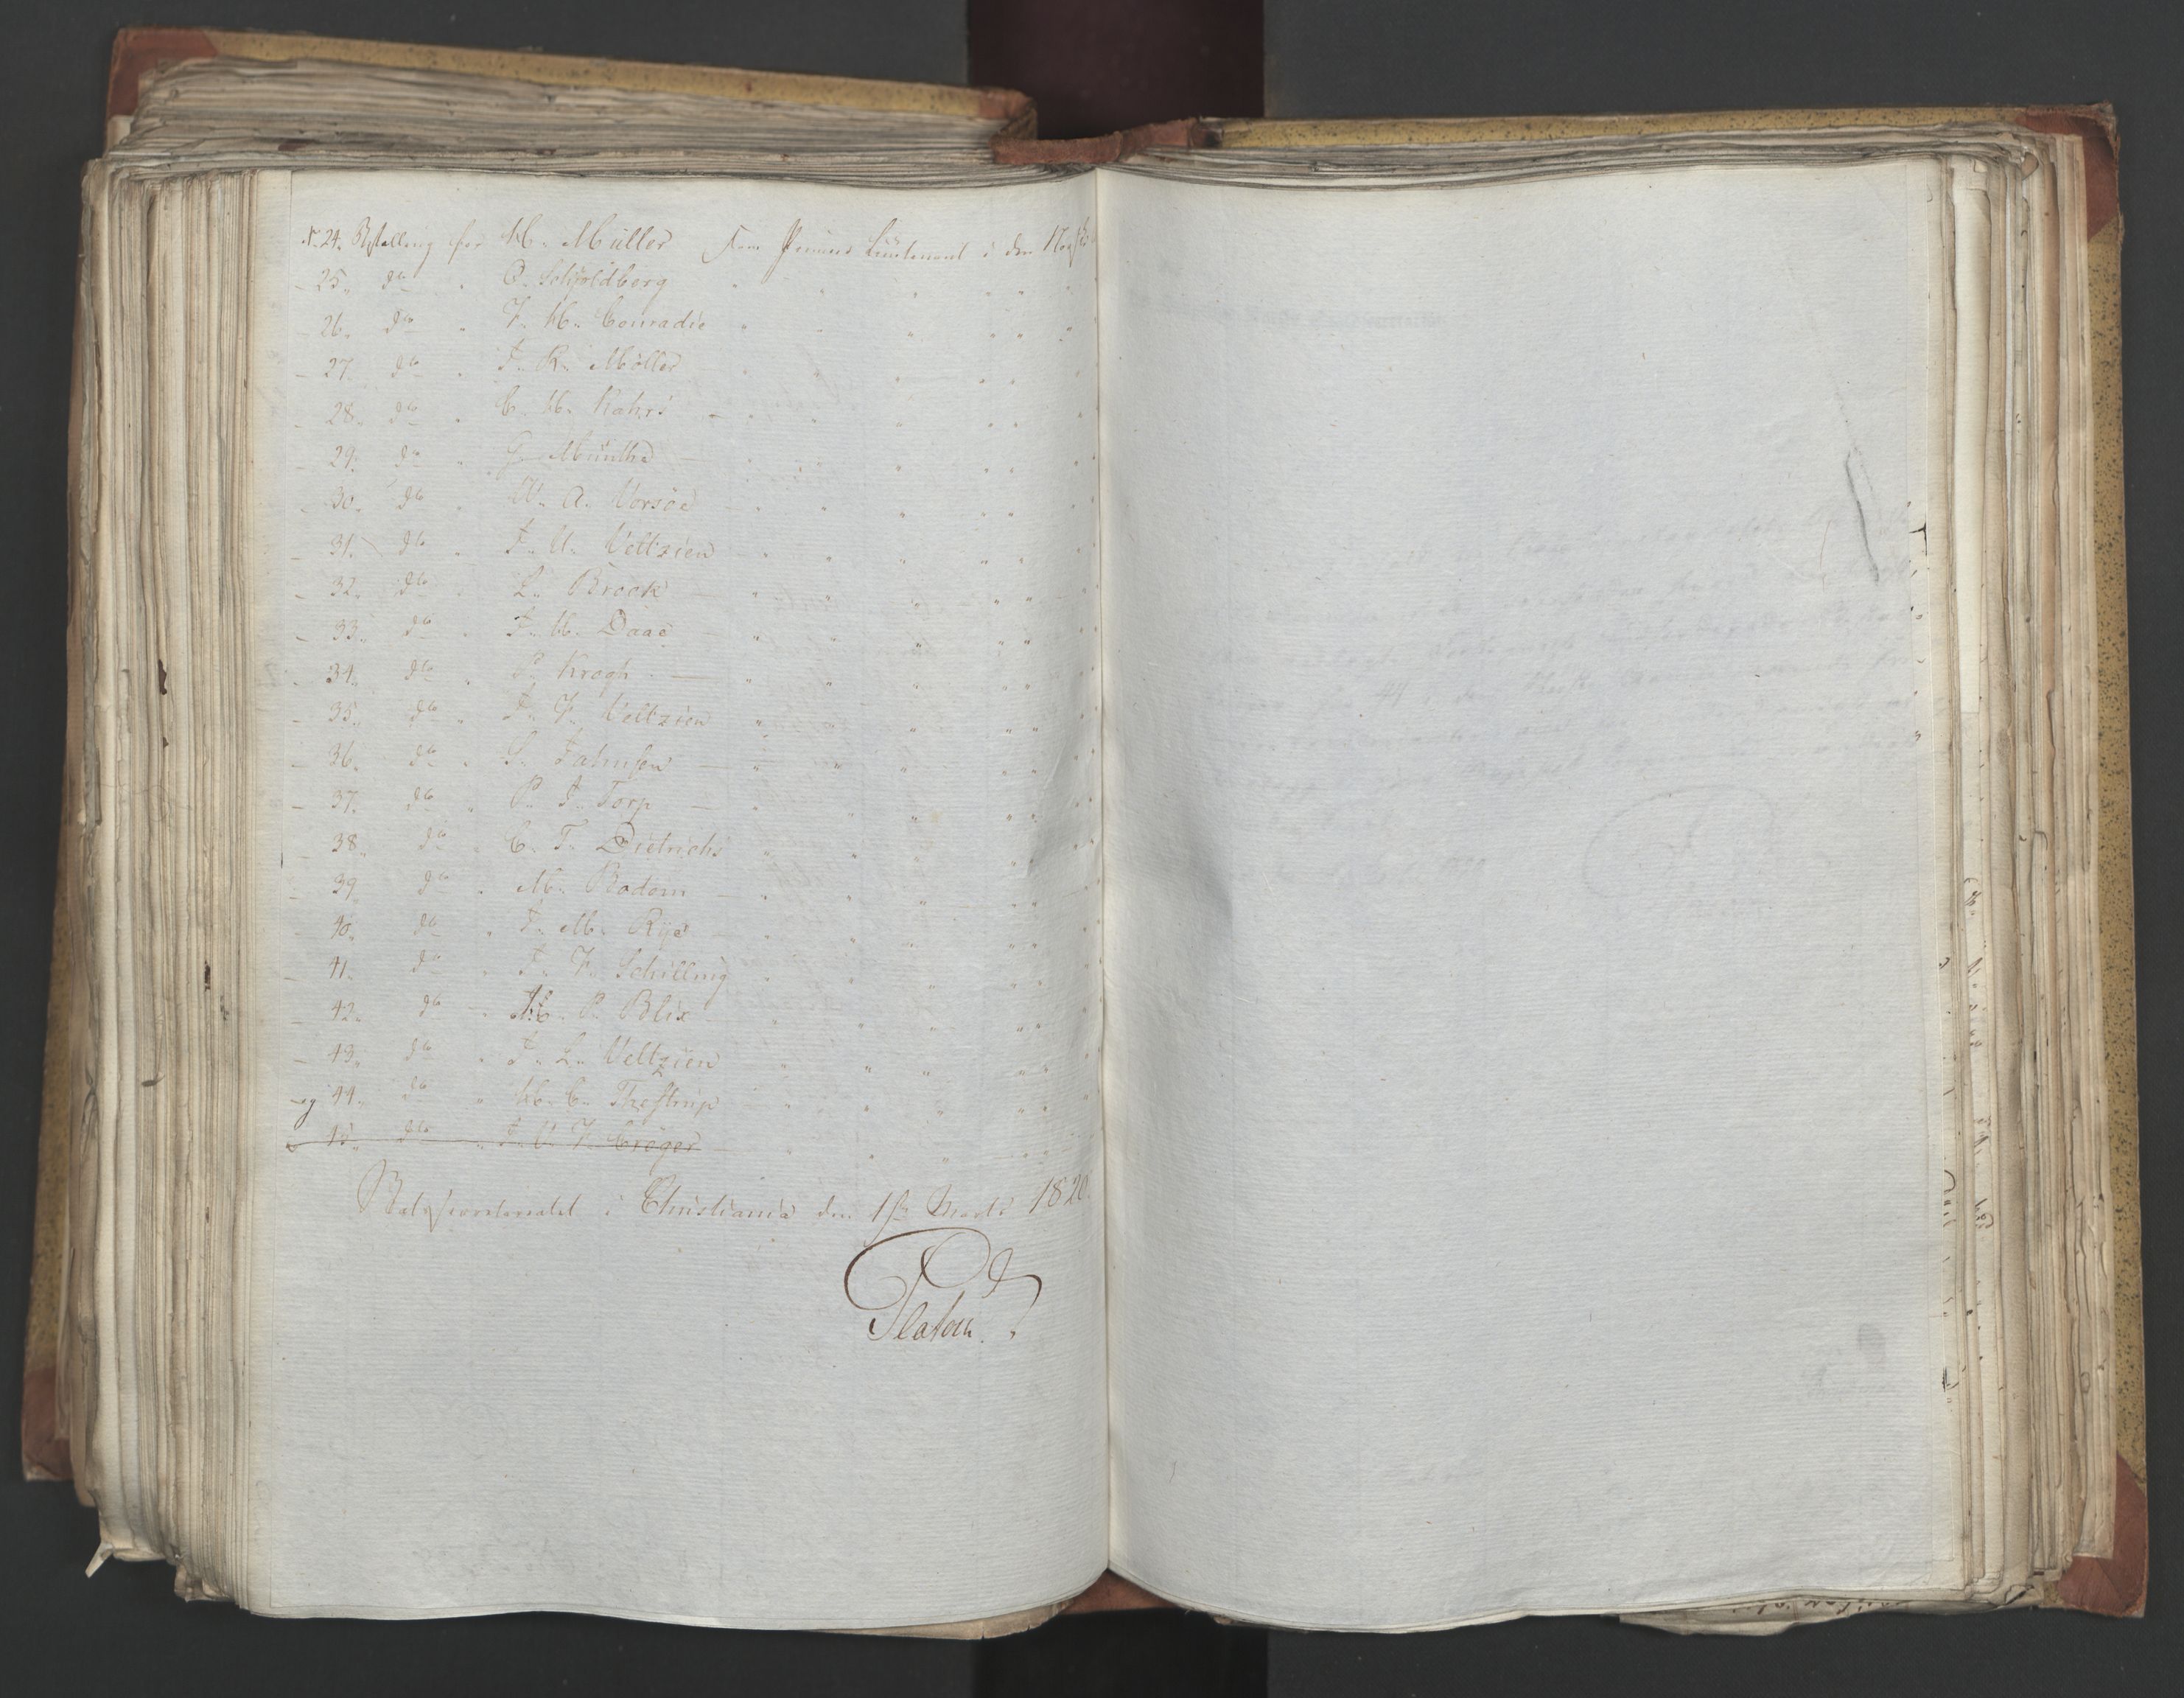 N. 24. Bestalling for H. Müller som Premier Lieutenant i den Norske
- 25. do " O. Schioldberg " " " "
- 26. do " F. H. Conradie " " " "
- 27. do " J. R. Möller " " " "
- 28. do " C. H. Kahrs - " " " "
- 29. do " G. Münthe - " " " "
- 30. do " W. A. Vorsöe - " " " "
- 31. do " J. U. Veltzien - " " " "
- 32. do " L. Brock - " " " "
- 33. do " J. H. Daae - " " " "
- 34. do " P. Krogh - " " " "
- 35. do " J. F. Veltzien " " " "
- 36. do " S. Jahnsen - " " " "
- 37. do " P. J. Torp - " " " "
- 38. do " C. T. Dietrichs " " " "
- 39. do " M. Bodom - " " " "
- 40. do " J. M. Rye - " " " "
- 41. do " J. F. Schilling " " " "
- 42. do - " H. P. Blix - " " " "
- 43. do " J. L. Veltzien " " " "
og 44. do " H. C. Thestrup " " " "
45. do " J. C. F. Cröger - " " "
Statssecretariatet i Christiania den 1ste Marts 1820.
Platou.